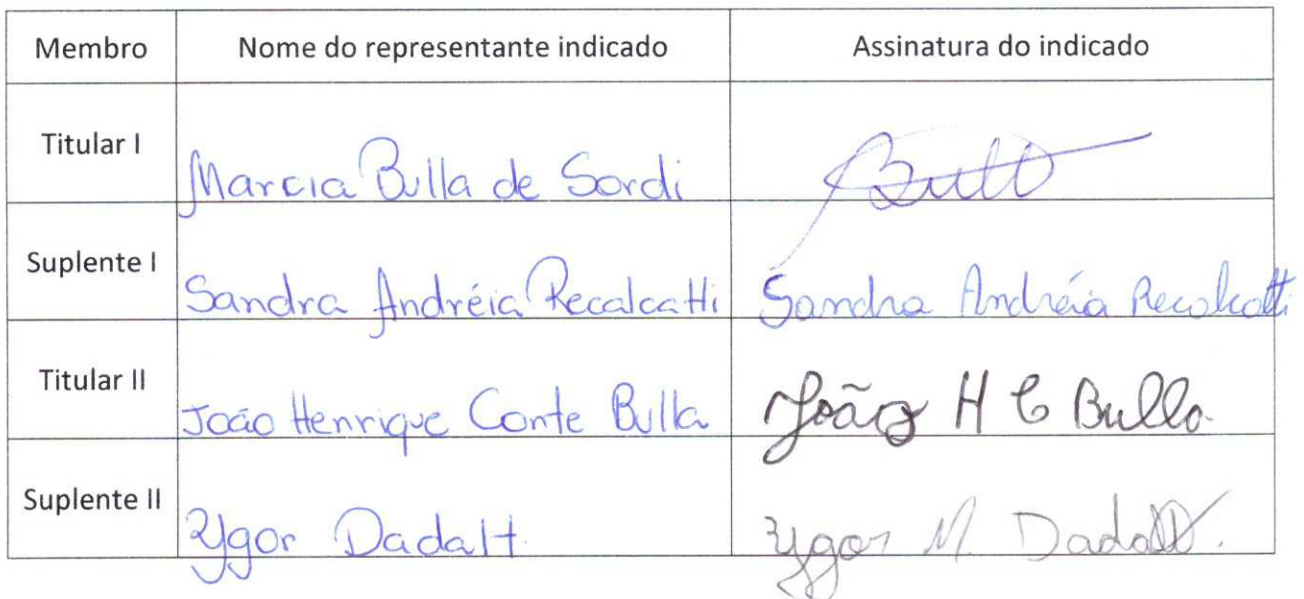 Membro Nome do representante indicado Assinatura do indicado
Titular I Marcia Bulla de Sordi Bull
Suplente I Sandra Andréia Recalcatti Sandra Andréia Recalcatti
Titular II João Henrique Conte Bulla João H C Bulla
Suplente II Ygor Dadalt Ygor M. Dadalt.